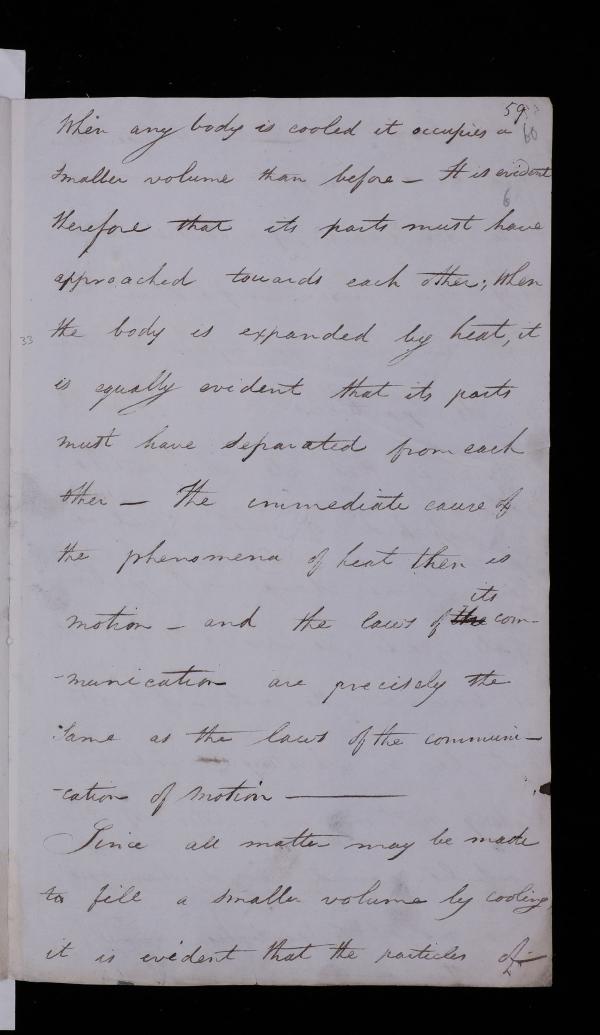 59
When any body is cooled it occupies a
60
smaller volume than before — It is evident
6
therefore that its parts must have
approached towards each other; When
33
the body is expanded by heat, it
is equally evident that its parts
must have separated from each
other — The immediate cause of
the phenomena of heat then is
its
motion — and the laws of the com-
-munication are precisely the
same as the laws of the communi-
-cation of motion ———
Since all matter may be made
to fill a smaller volume by cooling
it is evident that the particles of